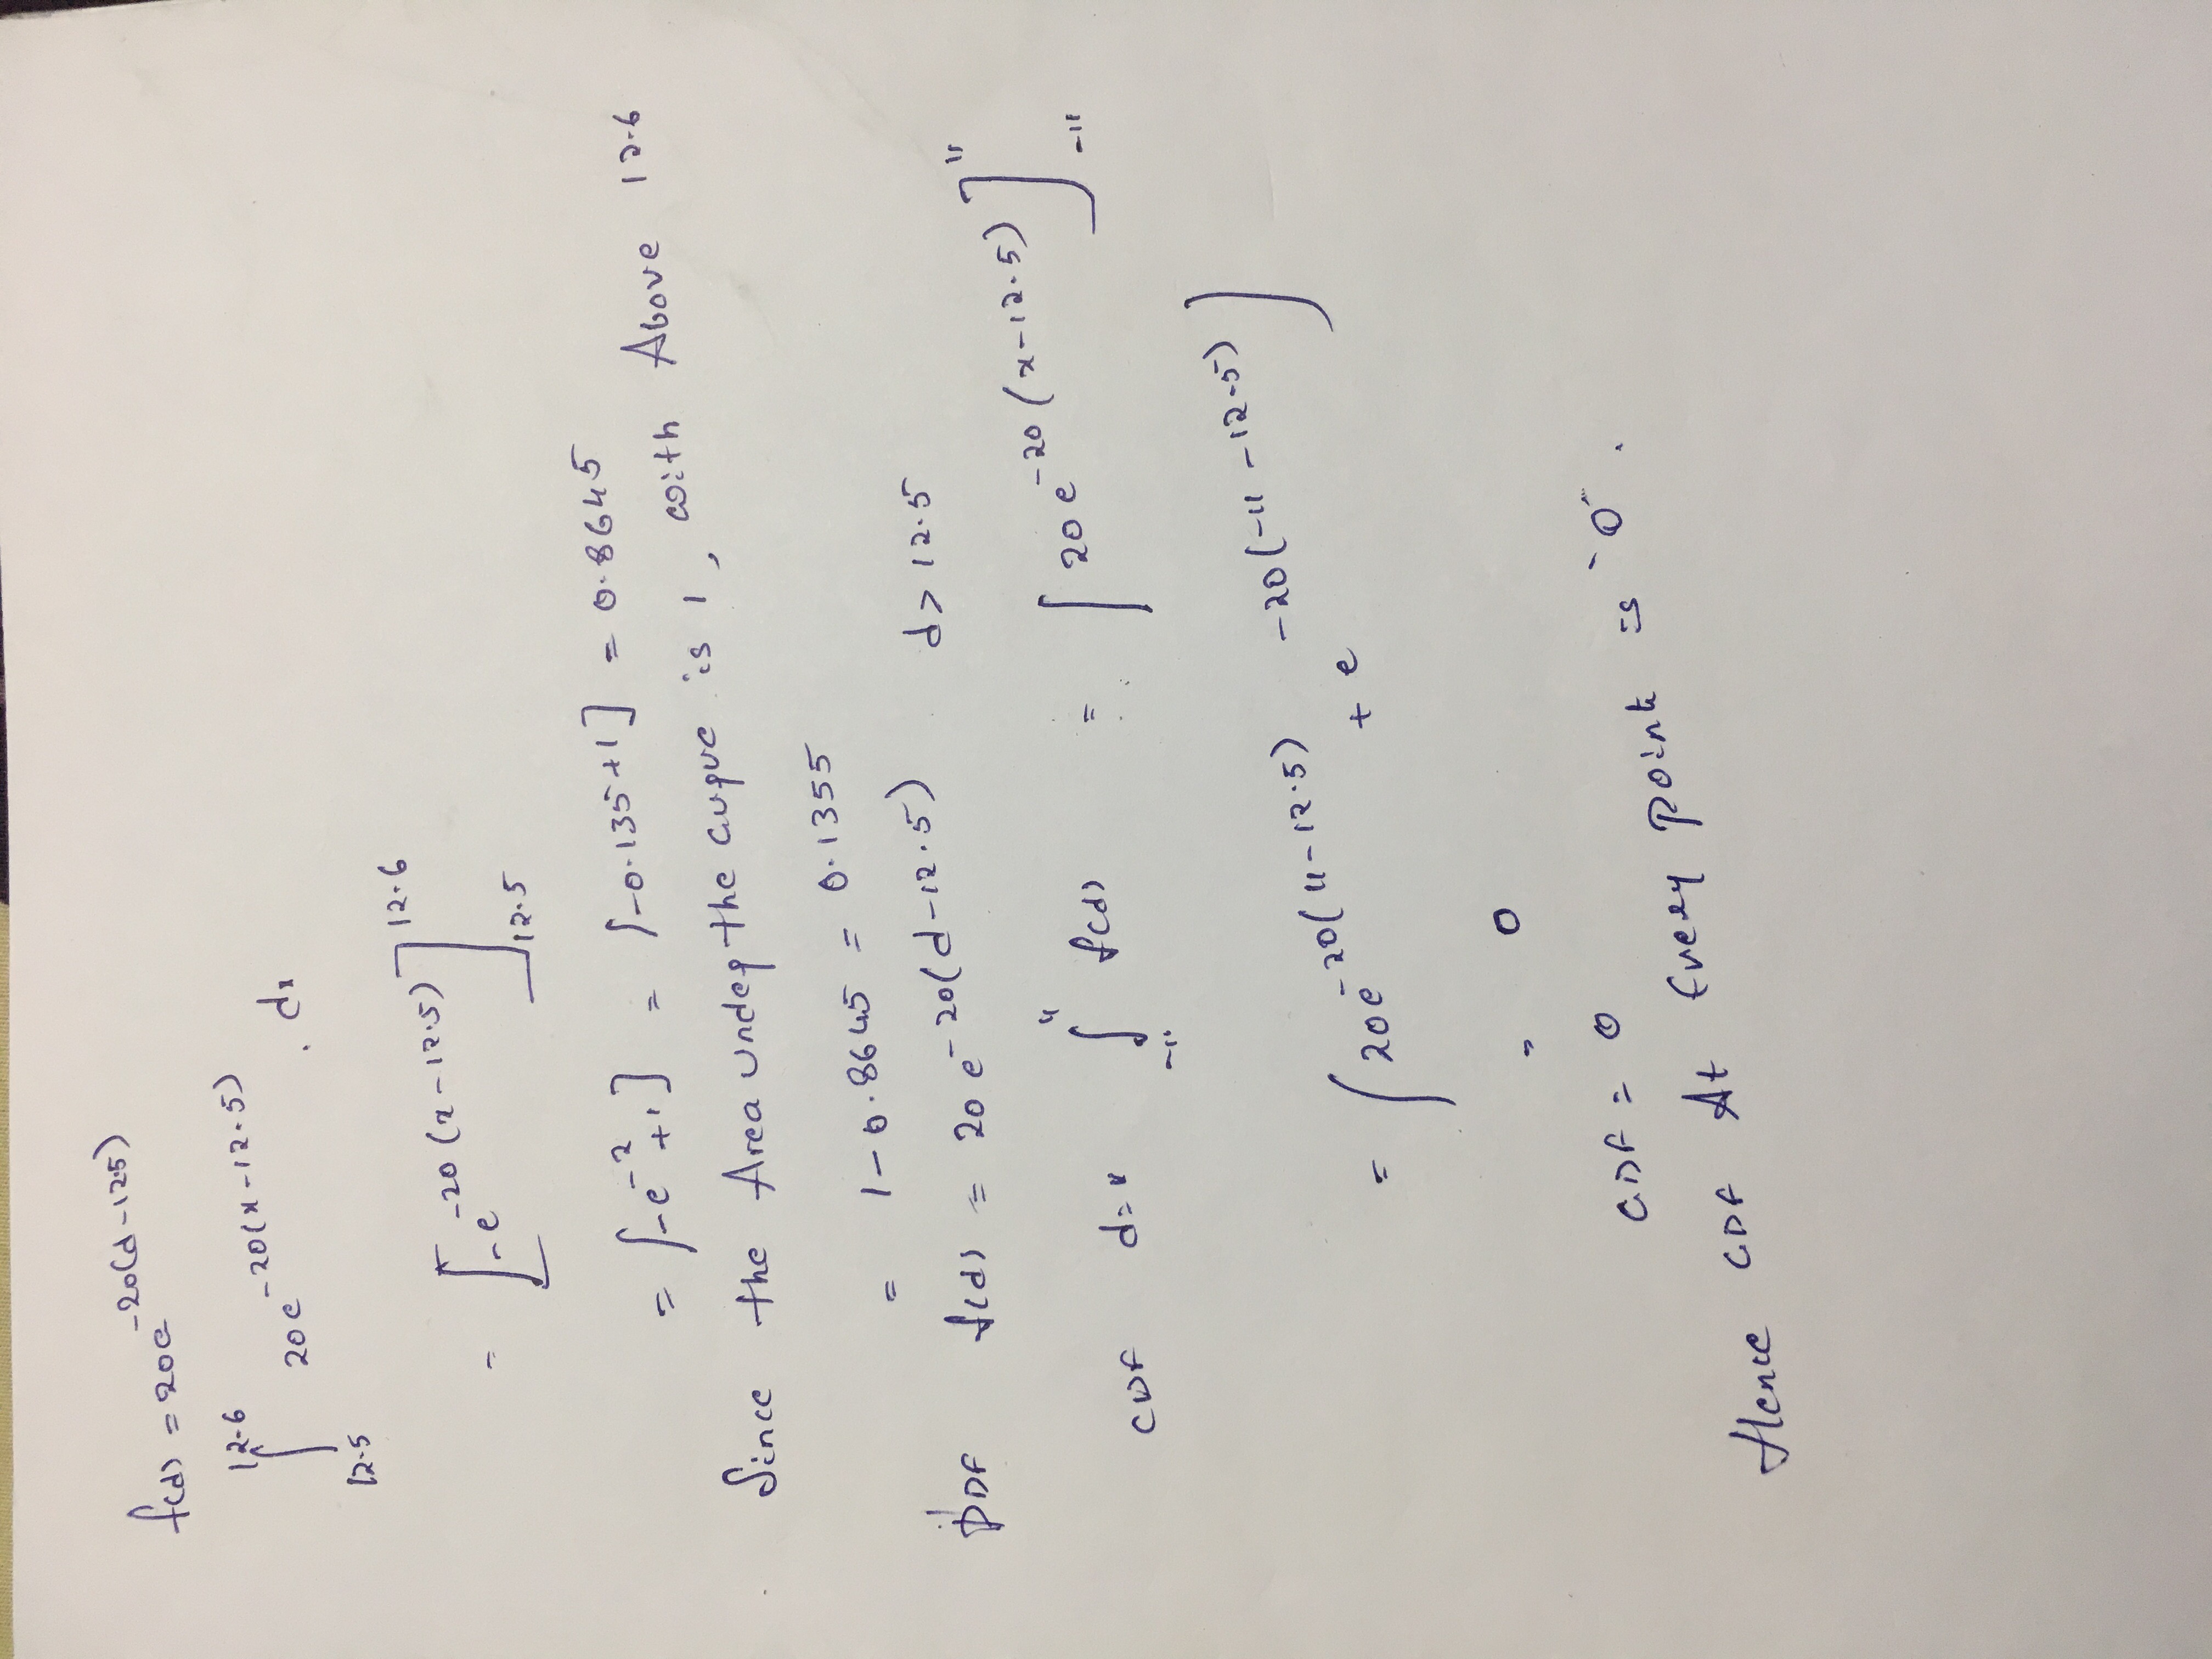 f(d) = 20e^-20(d-12.5)
∫_12.5^12.6 20e^-20(x-12.5) . dx
= [-e^-20(x-12.5)]_12.5^12.6
= [-e^-2+1] = [-0.135+1] = 0.8645
Since the Area under the curve is 1, with Above 12.6
= 1-0.8645 = 0.1355
PDF f(d) = 20e^-20(d-12.5) d> 12.5
CDF d=11 ∫_-11^11 f(d) = [20e^-20(x-12.5)]_-11^11
= [20e^-20(11-12.5) + e^-20(-11-12.5)]
= 0
CDF = 0
Hence CDF At Every point is `0´.